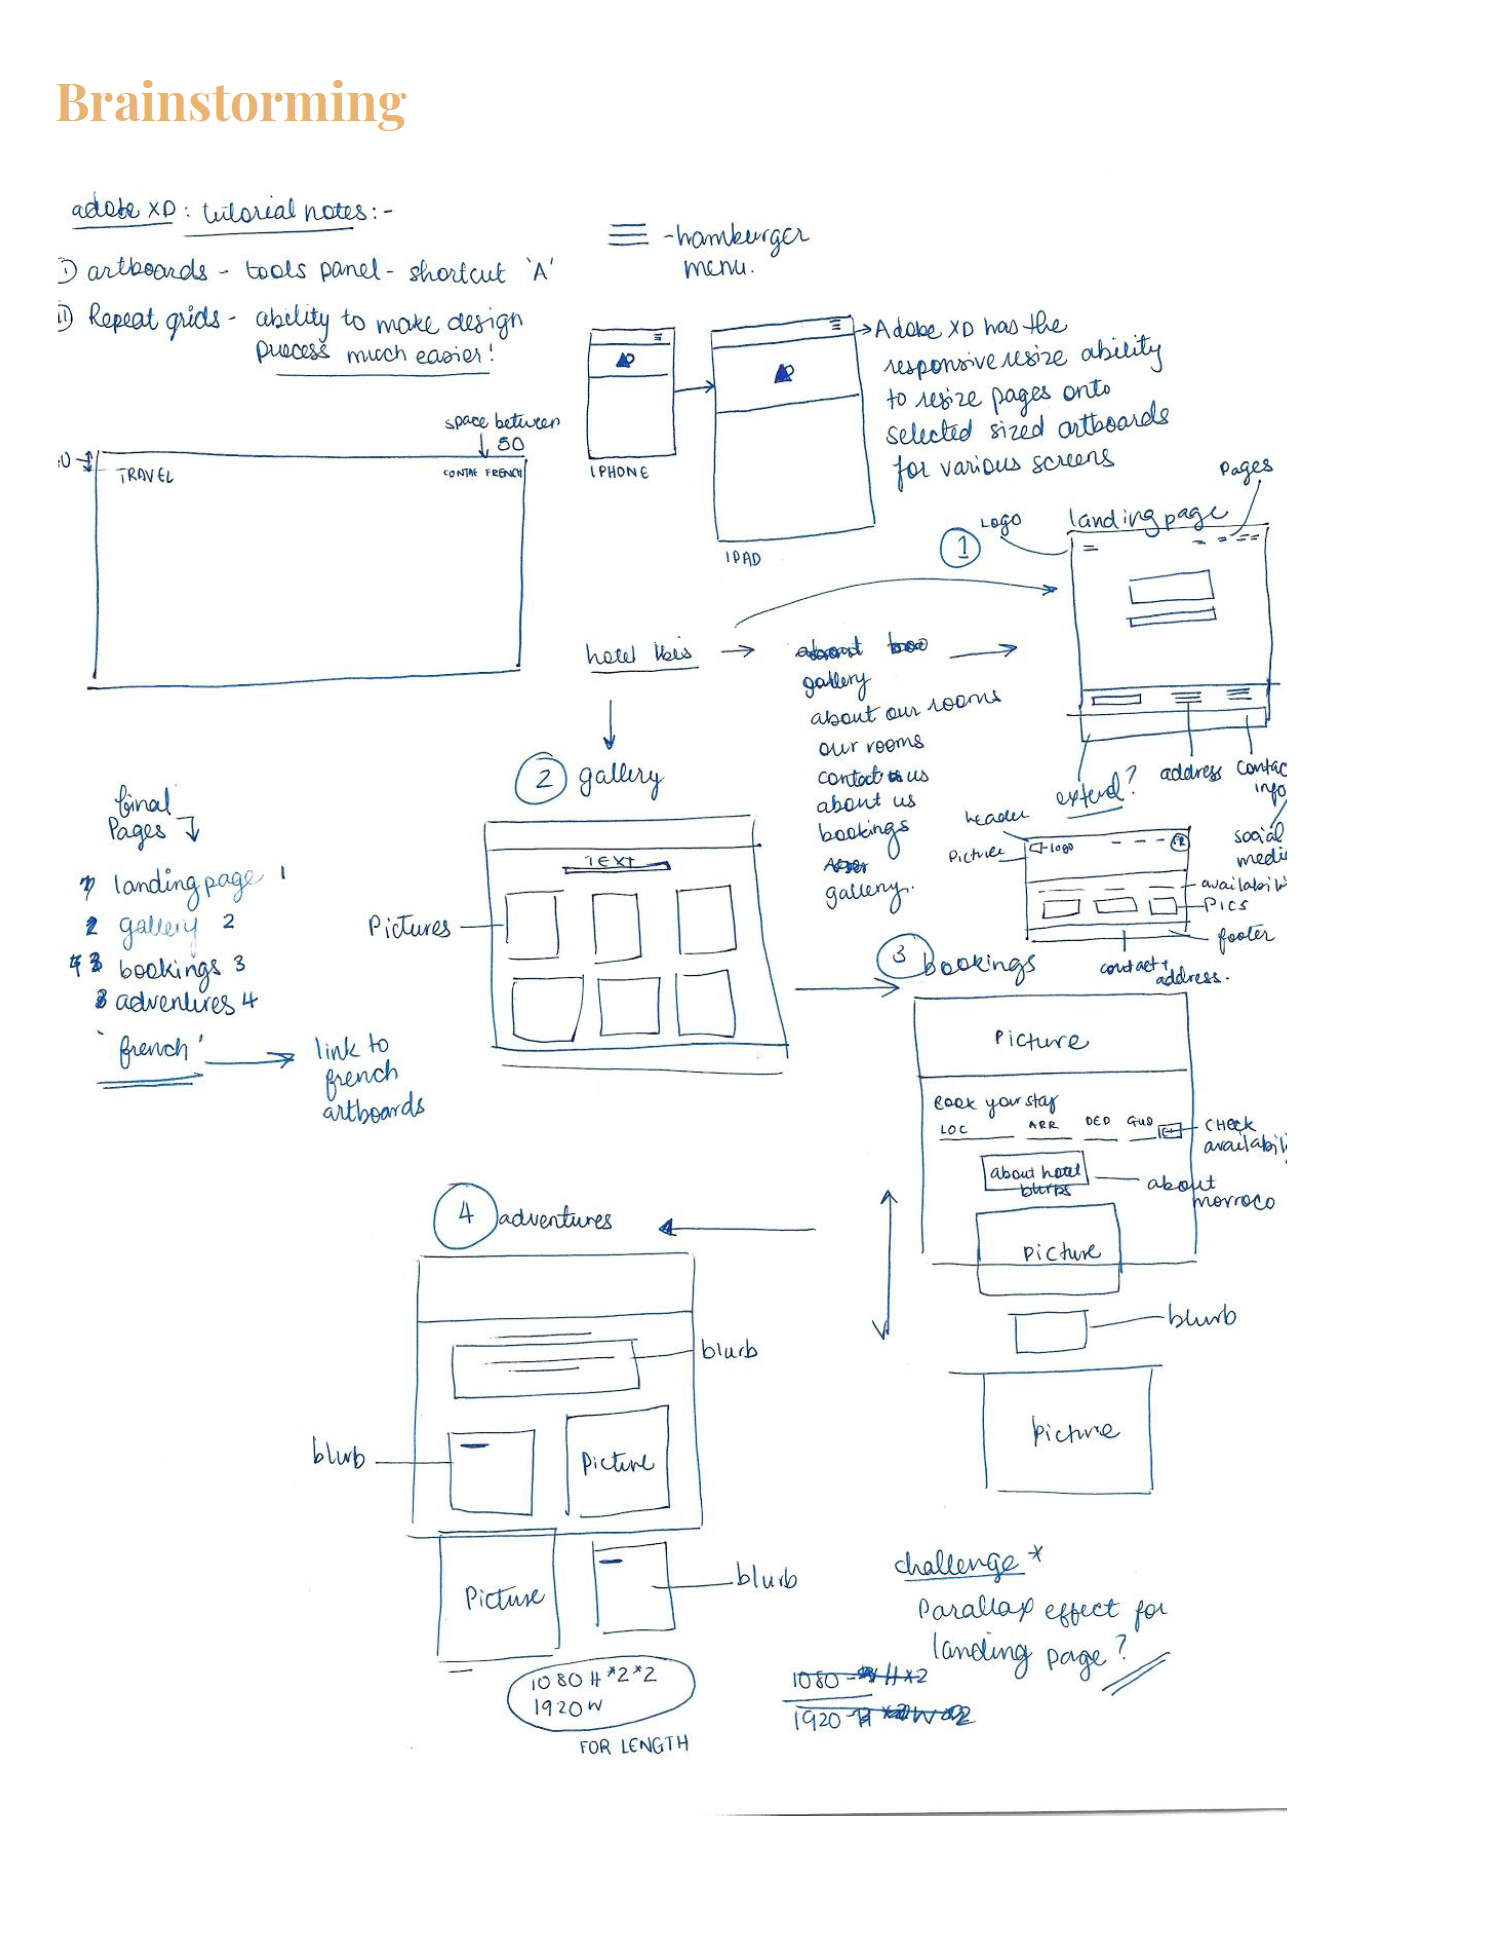 Brainstorming
adobe XD: tutorial notes:-
i) artboards - tools panel - shortcut 'A'
ii) Repeat grids - ability to make design
process much easier!
≡ - hamburger
menu.
IPHONE
IPAD
Adobe XD has the
responsive resize ability
to resize pages onto
selected sized artboards
for various screens
space between
↓ 50
TRAVEL
FRENCH
1
Logo
landing page
Pages
extend?
address
contac
info
social
medi
hotel
gallery
about our rooms
our rooms
contact us
about us
bookings
gallery.
header
Picture
logo
availabili
Pics
footer
contact +
address.
2 gallery
TEXT
Pictures
final
Pages
landing page 1
2 gallery 2
bookings 3
adventures 4
'french'
link to
french
artboards
3 bookings
Picture
book your stay
LOC ARR DEP
CHECK
availabili
about hotel
blurbs
about
morroco
Picture
blurb
Picture
4 adventures
blurb
blurb
Picture
Picture
blurb
1080 H *2*2
1920 W
FOR LENGTH
challenge *
Parallax effect for
landing page?
1080
1920